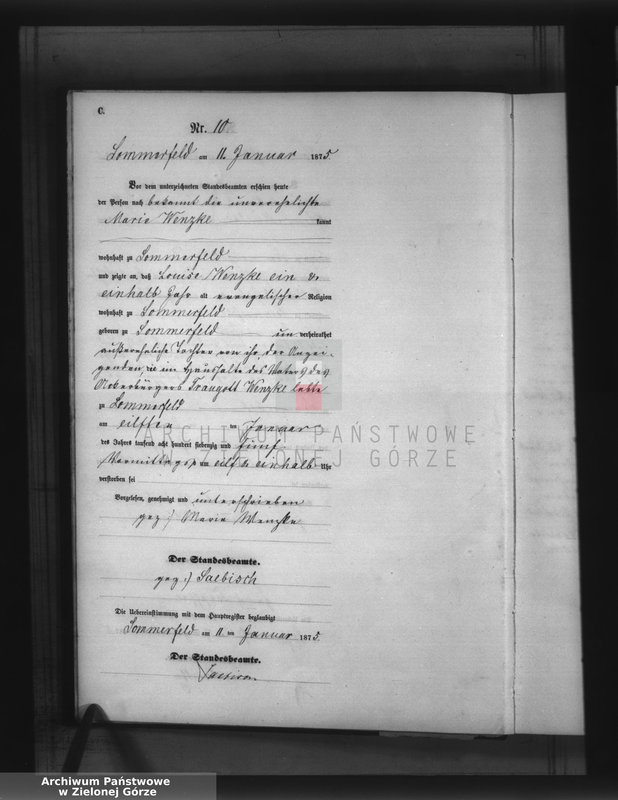 C.
Nr. 10
Sommerfeld am 11. Januar 1875
Vor dem unterzeichneten Standesbeamten erschien heute
der Person nach bekannt die unverehelichte
Marie Wenzke kannt
wohnhaft zu Sommerfeld
und zeigte an, daß Louise Wenzke ein &
einhalb Jahr alt evangelischer Religion
wohnhaft zu Sommerfeld
geboren zu Sommerfeld un verheirathet
außereheliche Tochter von ihr, der Anzei-
genden, die im Haushalte des Vaters des
Ackerbürgers Traugott Wenzke lebte
zu Sommerfeld
am eilften ten Januar
des Jahres tausend acht hundert siebenzig und fünf
Vormittags um eilf & einhalb Uhr
verstorben sei
Vorgelesen, genehmigt und unterschrieben
gez) Marie Wenzke
Der Standesbeamte.
gez.) Saebisch
Die Uebereinstimmung mit dem Hauptregister beglaubigt
Sommerfeld am 11 ten Januar 1875.
Der Standesbeamte.
ARCHIWUM PAŃSTWOWE
W ZIELONEJ GÓRZE
Archiwum Państwowe
w Zielonej Górze